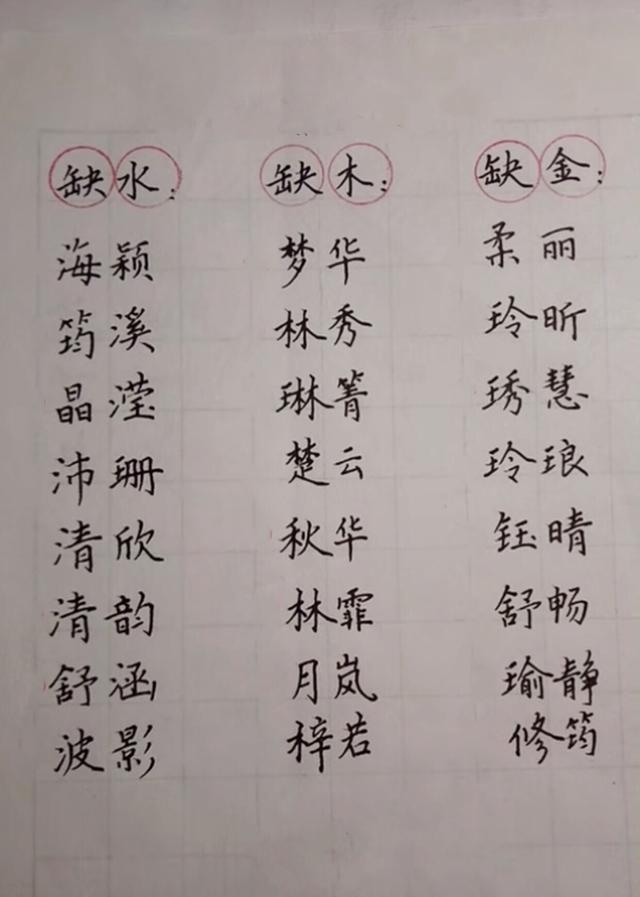 缺水：
海颖
筠溪
晶滢
沛珊
清欣
清韵
舒涵
波影
缺木：
梦华
林秀
琳箐
楚云
秋华
林霏
月岚
梓若
缺金：
柔丽
玲昕
琇慧
玲琅
钰晴
舒畅
瑜静
修筠